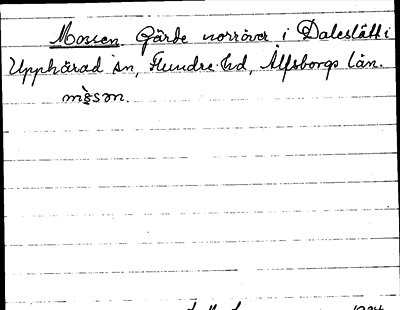 Mossen Gärde norröver i Daleslätt i
Upphärad sn, Flundre hd, Älfsborgs län.